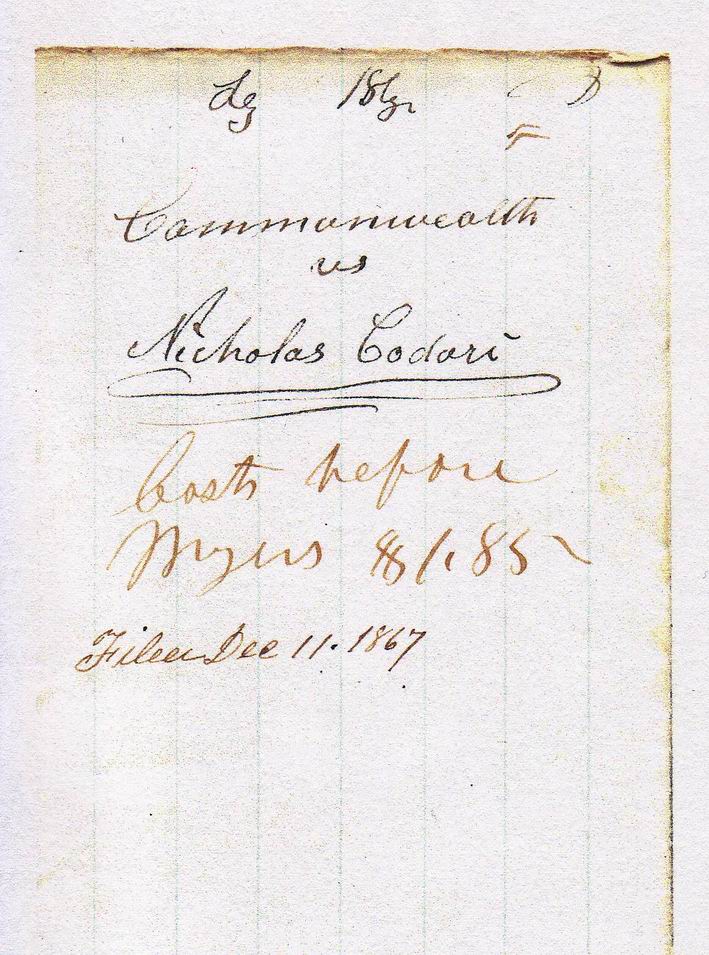 Commonwealth
vs
Nicholas Codori
Costs before
Myers $1.85
Filed Dec 11. 1867